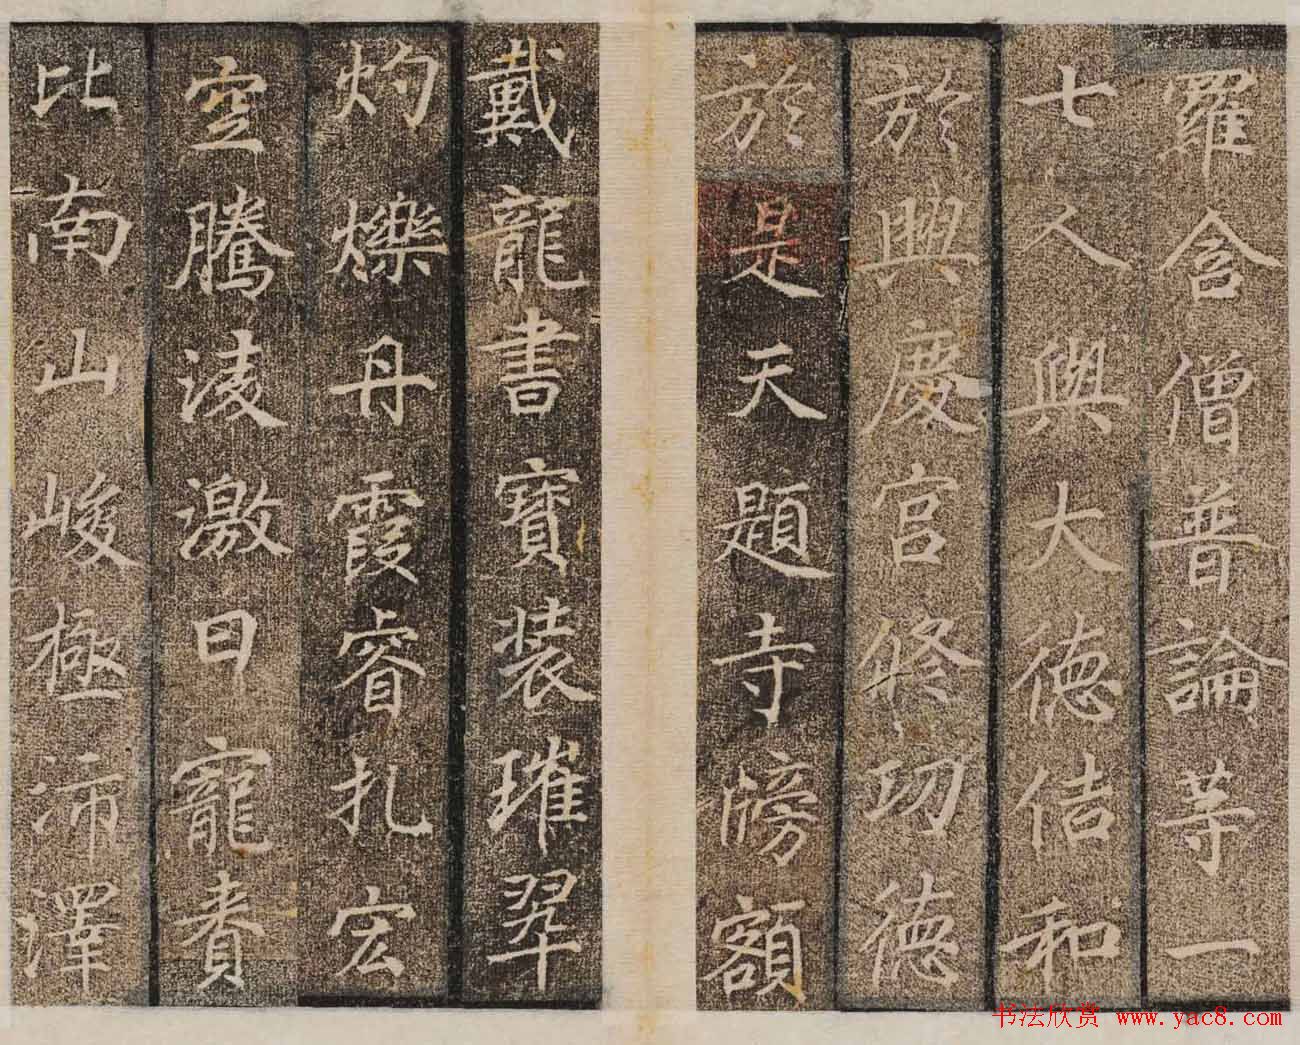 羅含僧普論等一
七人與大德佶和
於興慶宮修功德
於是天題寺牓額
戴龍書寶裝璀翠
灼爍丹霞睿扎宏
雲騰淩激日寵賚
比南山峻極沛澤
书法欣赏 www.yac8.com